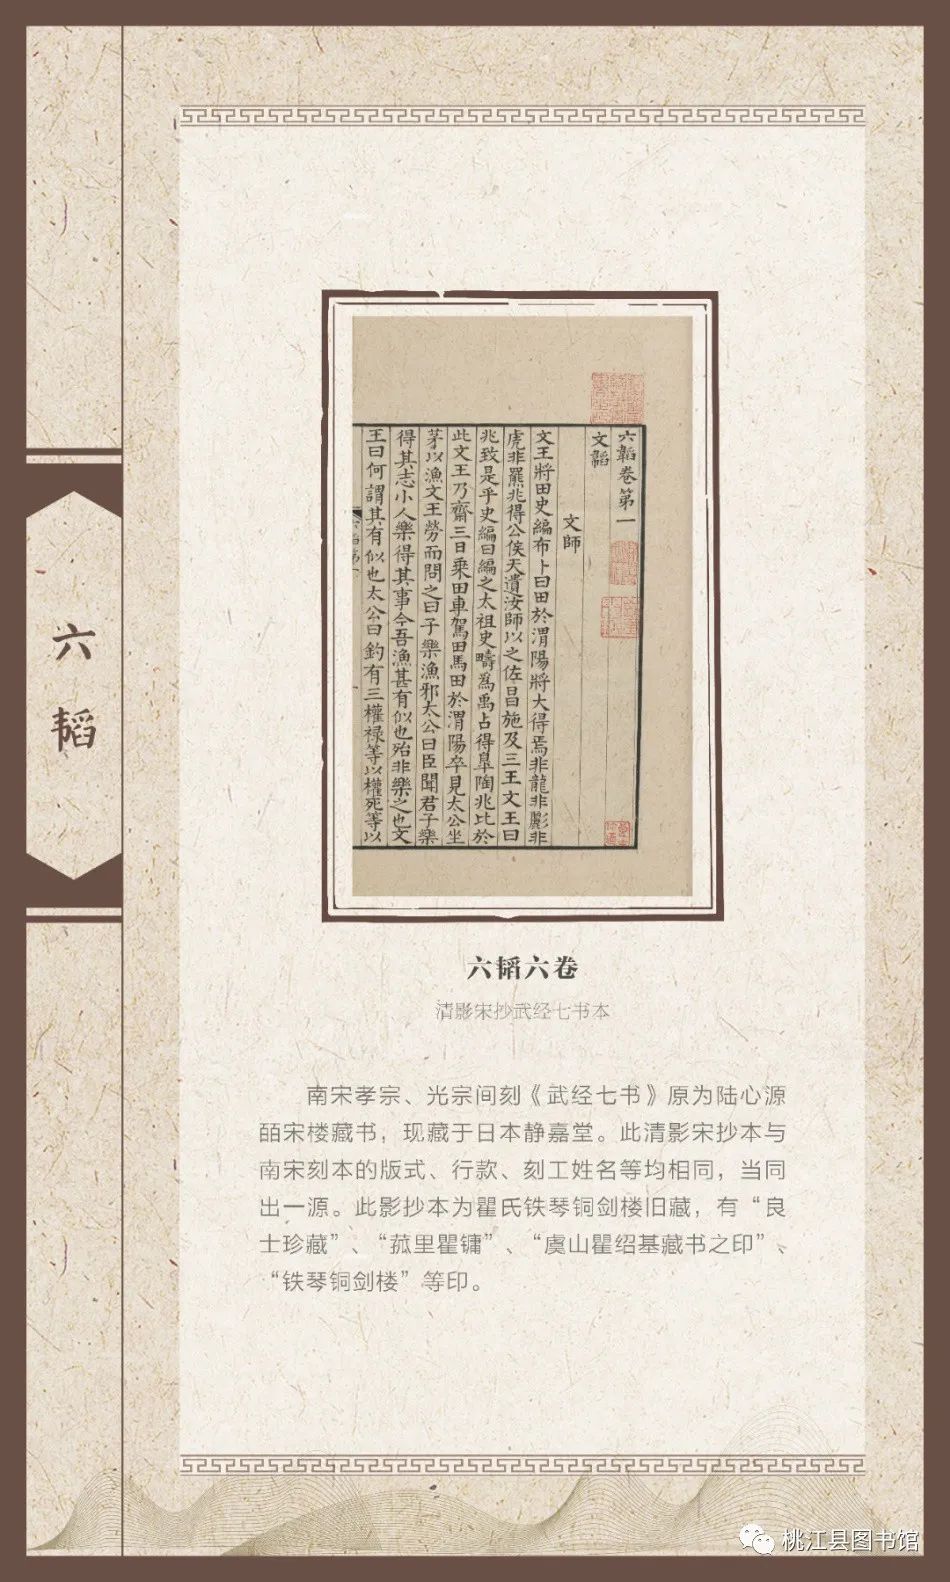 六韬
六韜卷第一
文韜
文師
文王將田史編布卜曰田於渭陽將大得焉非龍非彲非
虎非羆兆得公侯天遺汝師以之佐昌施及三王文王曰
兆致是乎史編曰編之太祖史疇為禹占得皐陶兆比於
此文王乃齋三日乘田車駕田馬田於渭陽卒見太公坐
茅以漁文王勞而問之曰子樂漁邪太公曰臣聞君子樂
得其志小人樂得其事今吾漁甚有似也殆非樂之也文
王曰何謂其有似也太公曰釣有三權禄等以權死等以
六韬六卷
清影宋抄武经七书本
南宋孝宗、光宗间刻《武经七书》原为陆心源
皕宋楼藏书，现藏于日本静嘉堂。此清影宋抄本与
南宋刻本的版式、行款、刻工姓名等均相同，当同
出一源。此影抄本为瞿氏铁琴铜剑楼旧藏，有“良
士珍藏”、“菰里瞿镛”、“虞山瞿绍基藏书之印”、
“铁琴铜剑楼”等印。
桃江县图书馆